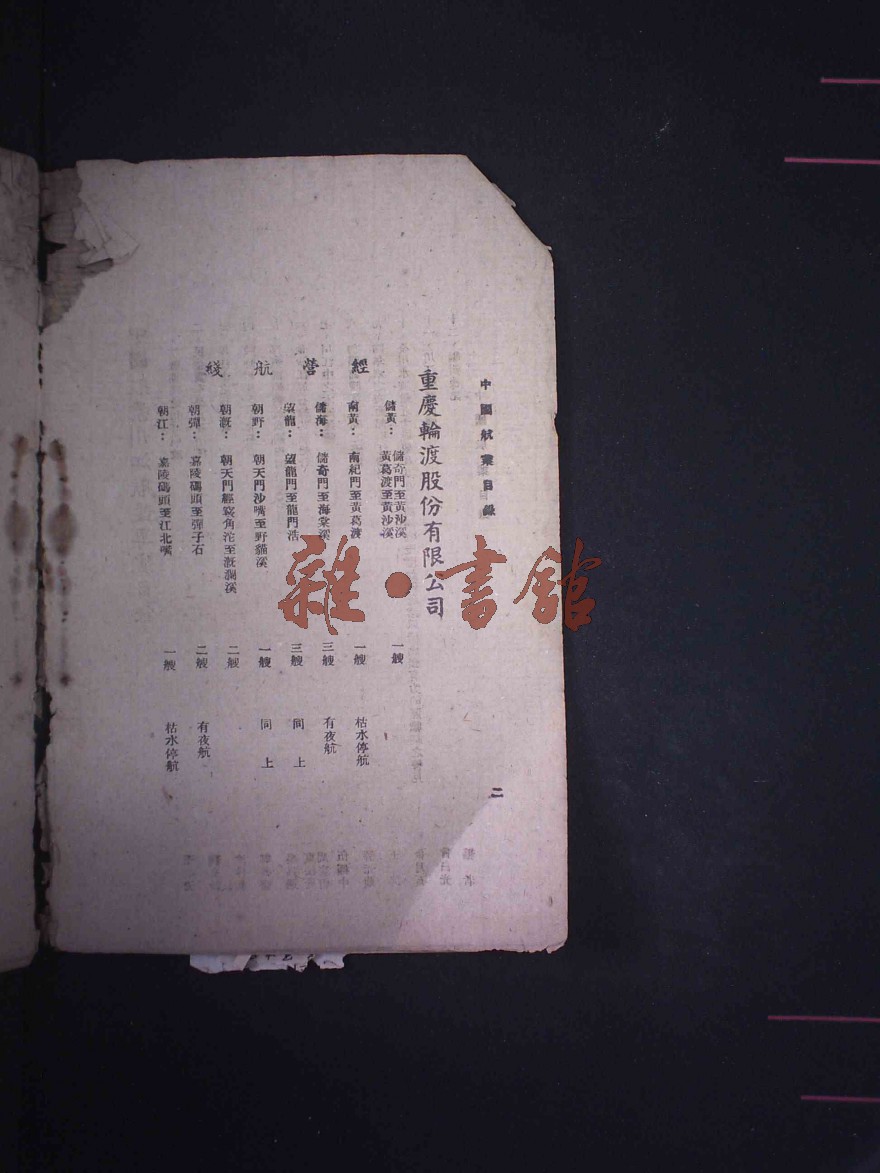 中國航業目錄
二
重慶輪渡股份有限公司
經營航綫
儲黃：儲奇門至黃沙溪 黃葛渡至黃沙溪 一艘
南黃：南紀門至黃葛渡 一艘 枯水停航
儲海：儲奇門至海棠溪 三艘 有夜航
望龍：望龍門至龍門浩 三艘 同上
朝野：朝天門沙嘴至野貓溪 一艘 同上
朝溉：朝天門經窍角沱至溉瀾溪 二艘
朝彈：嘉陵碼頭至彈子石 二艘 有夜航
朝江：嘉陵碼頭至江北嘴 一艘 枯水停航
雜·書館